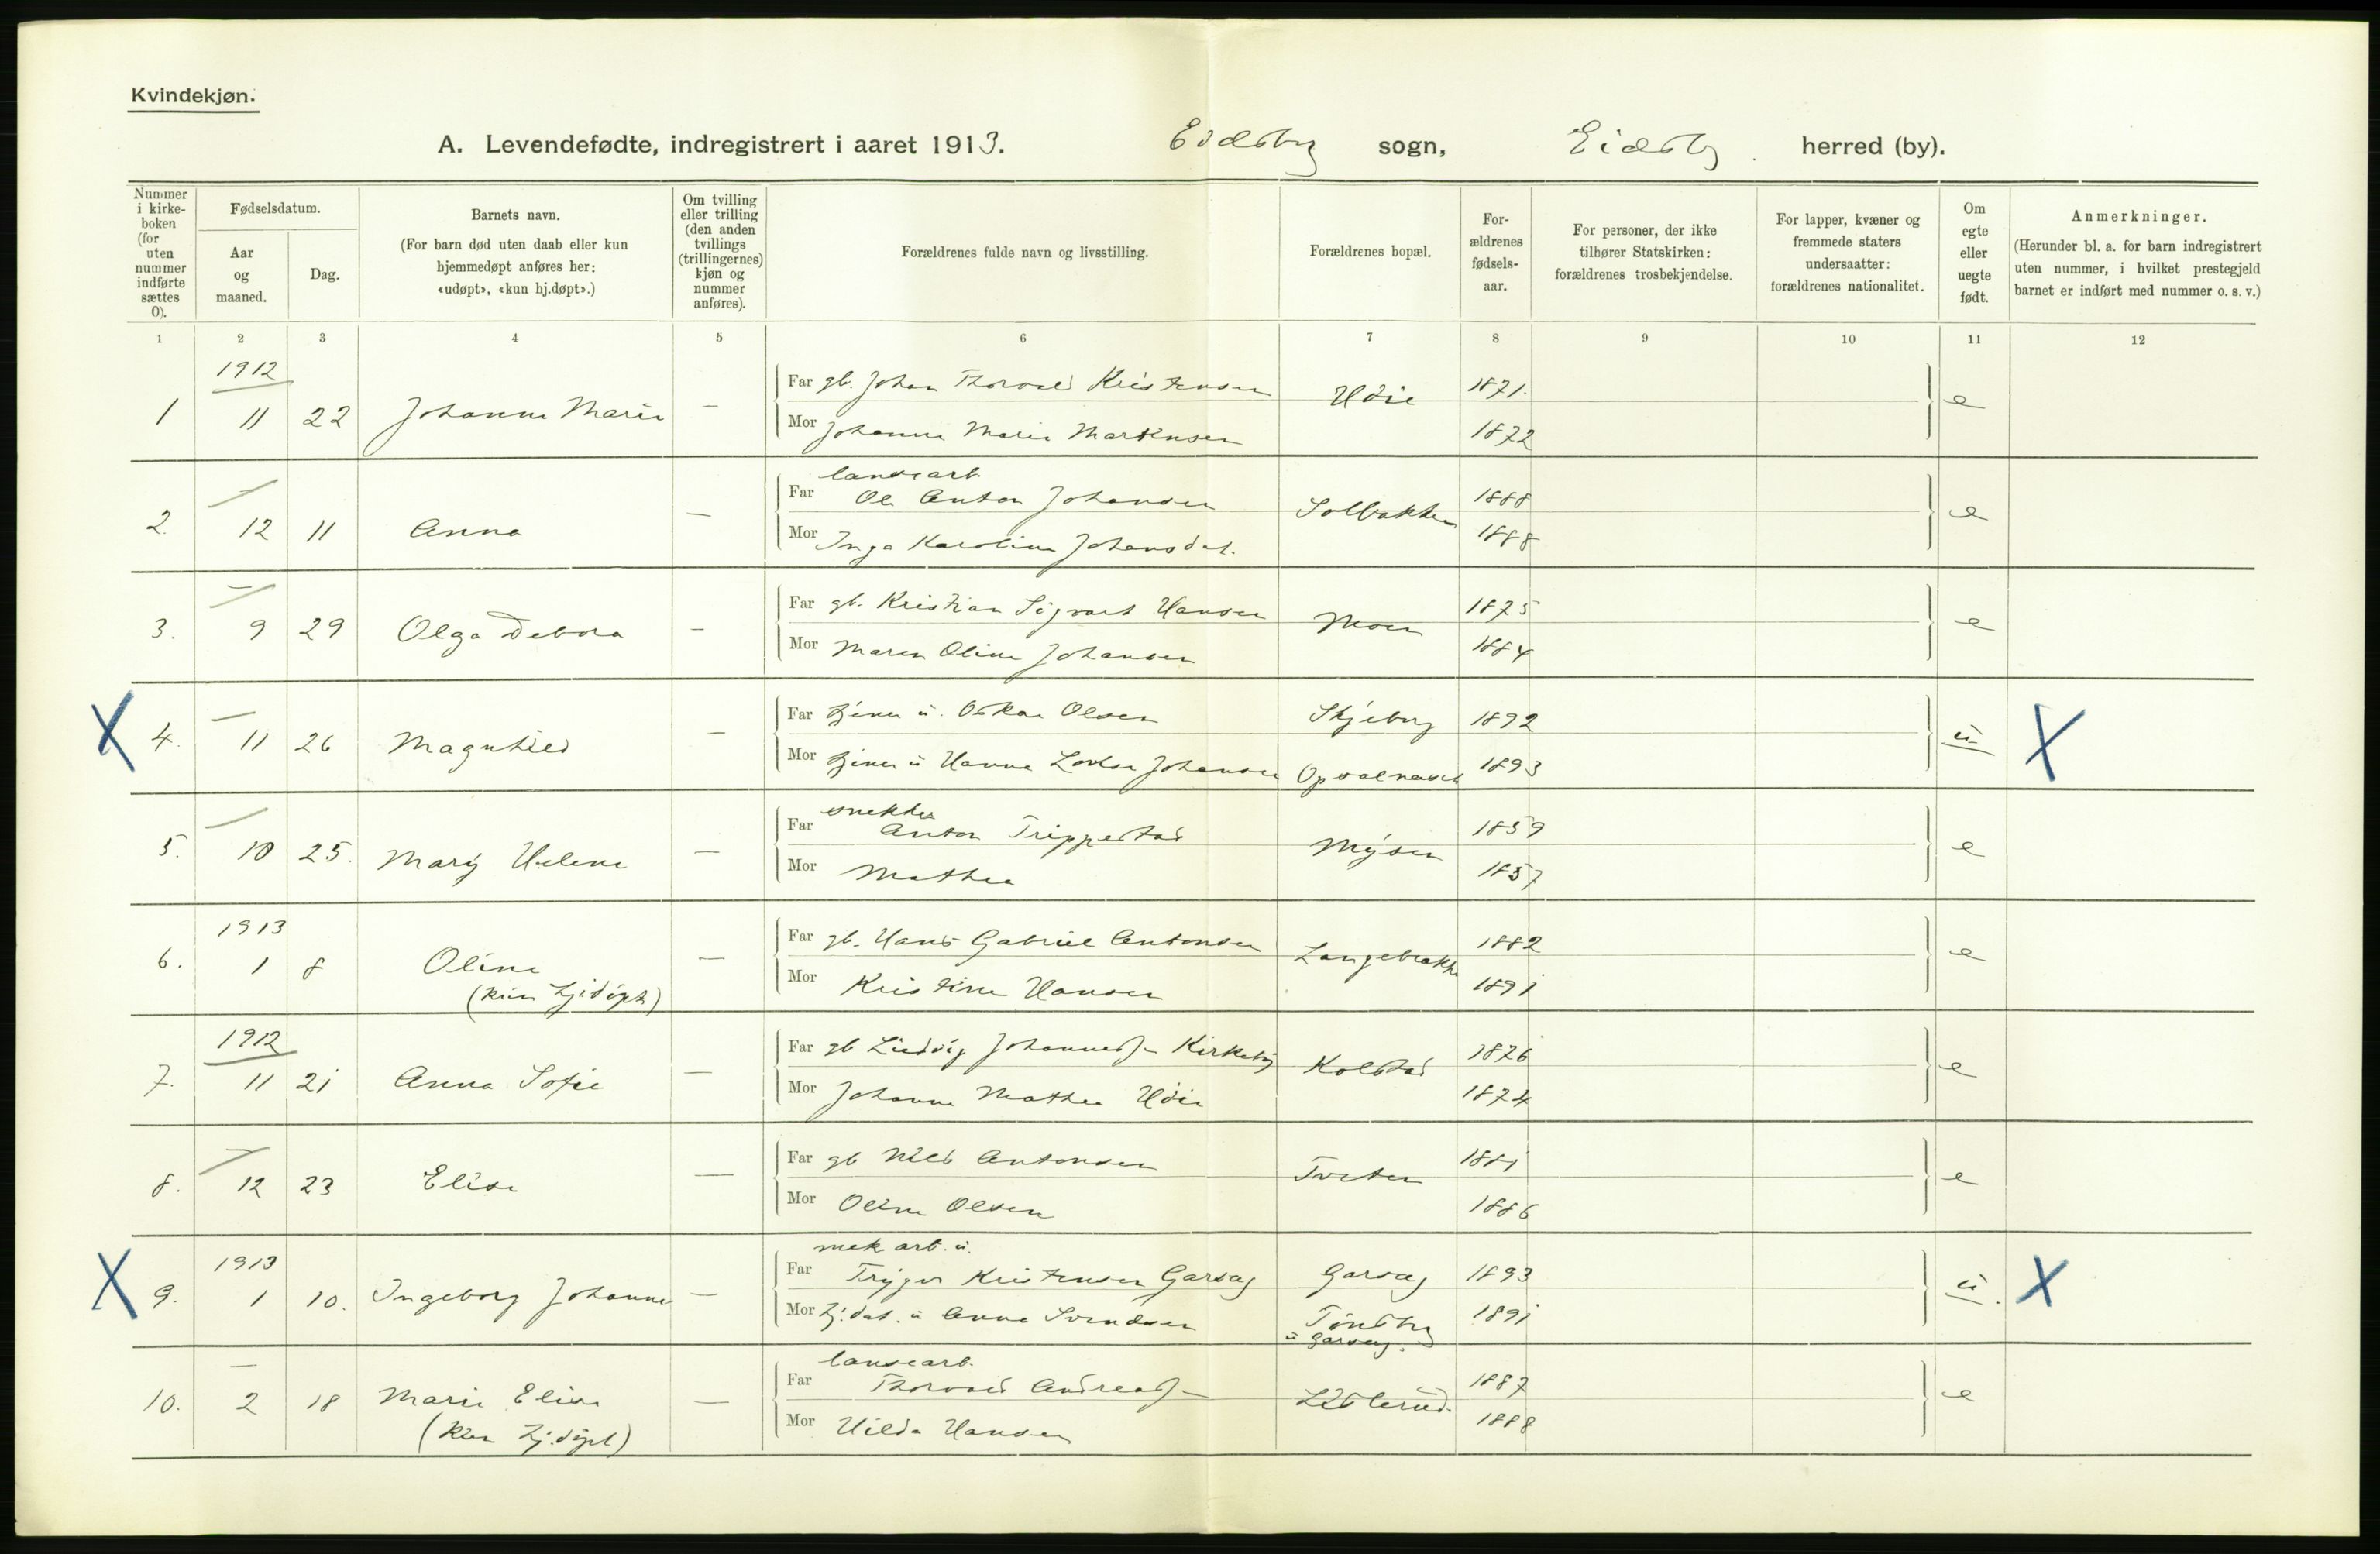 Kvindekjøn.
A. Levendefødte, indregistrert i aaret 1913. Eidsbg sogn, Eidsbg. herred (by).
Nummer i kirkeboken (for uten nummer indførte sættes 0).
Fødselsdatum.
Aar og maaned.
Dag.
Barnets navn.
(For barn død uten daab eller kun hjemmedøpt anføres her: «udøpt», «kun hj.døpt».)
Om tvilling eller trilling (den anden tvillings (trillingernes) kjøn og nummer anføres).
Forældrenes fulde navn og livsstilling.
Forældrenes bopæl.
Forældrenes fødselsaar.
For personer, der ikke tilhører Statskirken: forældrenes trosbekjendelse.
For lapper, kvæner og fremmede staters undersaatter: forældrenes nationalitet.
Om egte eller uegte født.
Anmerkninger.
(Herunder bl. a. for barn indregistrert uten nummer, i hvilket prestegjeld barnet er indført med nummer o. s. v.)
1 2 3 4 5 6 7 8 9 10 11 12
1912
Far gb. Johan Thorvald Kristensen 1871.
1 11 22 Johanne Marie — Udie e
Mor Johanne Marie Martinsen 1872
landearb.
Far Ole Anton Johansen 1888
2. — 12 11 Anna — Solbakken e
Mor Inga Karoline Johansdat. 1888
Far gb. Kristian Sigvart Hansen 1875
3. — 9 29 Olga Debora — Moen e
Mor Maren Oline Johansen 1884
Far tjener u. Oskar Olsen Skjebrg 1892
X 4. — 11 26 Magnhild — u X
Mor tjener u Hanna Lovise Johansen 1893
snekker
Far Anton Trippestad 1859
5. — 10 25. Mary Helene — Mysen e
Mor Mathea 1857
1913
Far gb. Hans Gabriel Antonsen 1882
6. 1 8 Oline — Langebrække e
(kun hjdöpt)
Mor Kristine Hansen 1891
1912
Far gb Ludvig Johannes- Kirkeby 1876
7. 11 21 Anna Sofie — Kolstad e
Mor Johanne Mathea Udie 1874
Far gb Nils Antonsen 1881
8. — 12 23 Elise — Tveten e
Mor Oline Olsen 1886
1913
mek arb. u.
Far Trygve Kristensen Garseg Garseg 1893
X 9. 1 10. Ingeborg Johanne — u. X
Mor hj. dat. u Anna Svendsen Tönsbg 1891
u Garseg.
landearb.
Far Thorvald Andreas- 1887
10. — 2 18 Marie Elise — e
(kun hj.döpt)
Mor Hilda Hansen 1888